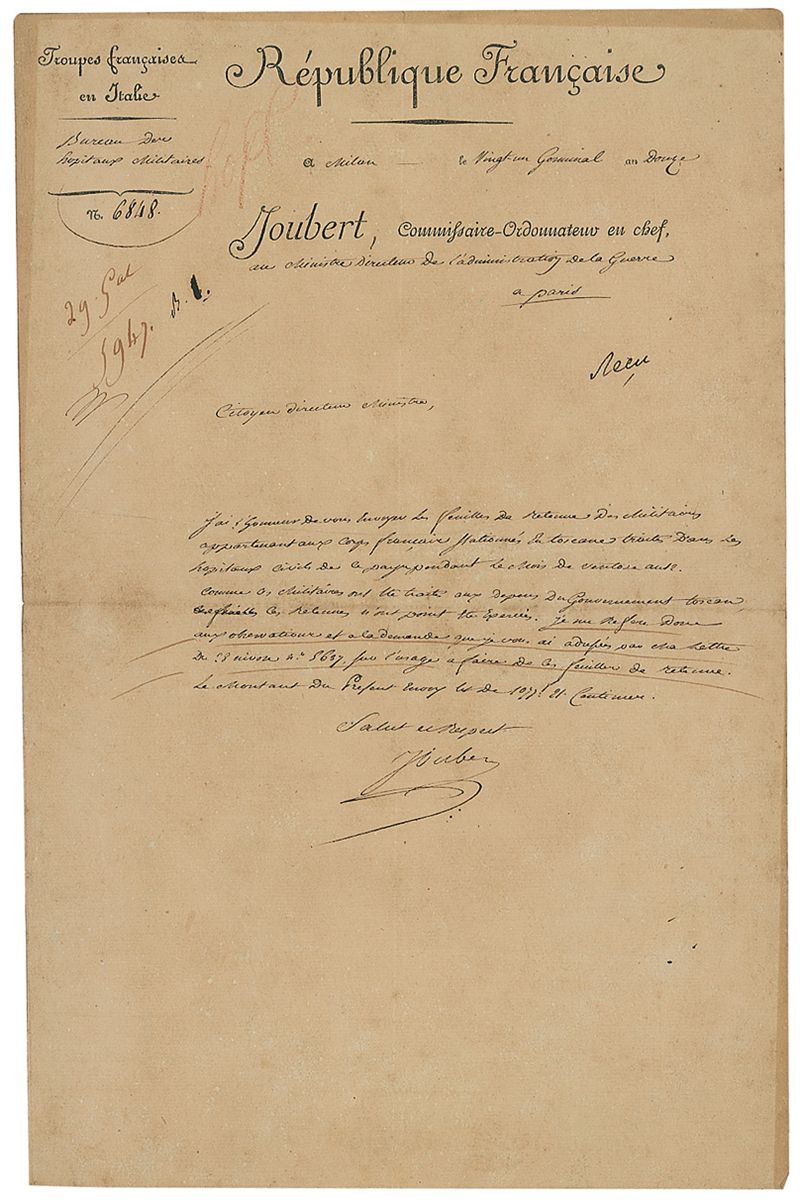 Troupes françaises
en Italie
République Française
Bureau des
hopitaux Militaires
N. 6848.
a Milan le Vingt un Germinal an Douze
Joubert, Commissaire-Ordonnateur en chef,
au Ministre Directeur de l'administration de la Guerre
a paris
29. Gal
5947. B. 1.
Reçu
Citoyen directeur Ministre,
J'ai l'honneur de vous Envoyer les feuilles de retenue des Militaires
appartenant aux corps français stationnés En toscane traités dans les
hopitaux civils de ce pays pendant le Mois de ventose
Comme ces Militaires ont été traités aux depens du Gouvernement toscan,
ces retenues n'ont point été Exercées. Je me Refere Donc
aux observations et a la demande que je vous ai adressées par ma Lettre
Du 28 nivose n.° 5697. sur l'usage a faire de ces feuilles de retenue.
Le Montant Du Présent Envoy Est de 197f. 21. Centimes.
Salut et Respect
Joubert